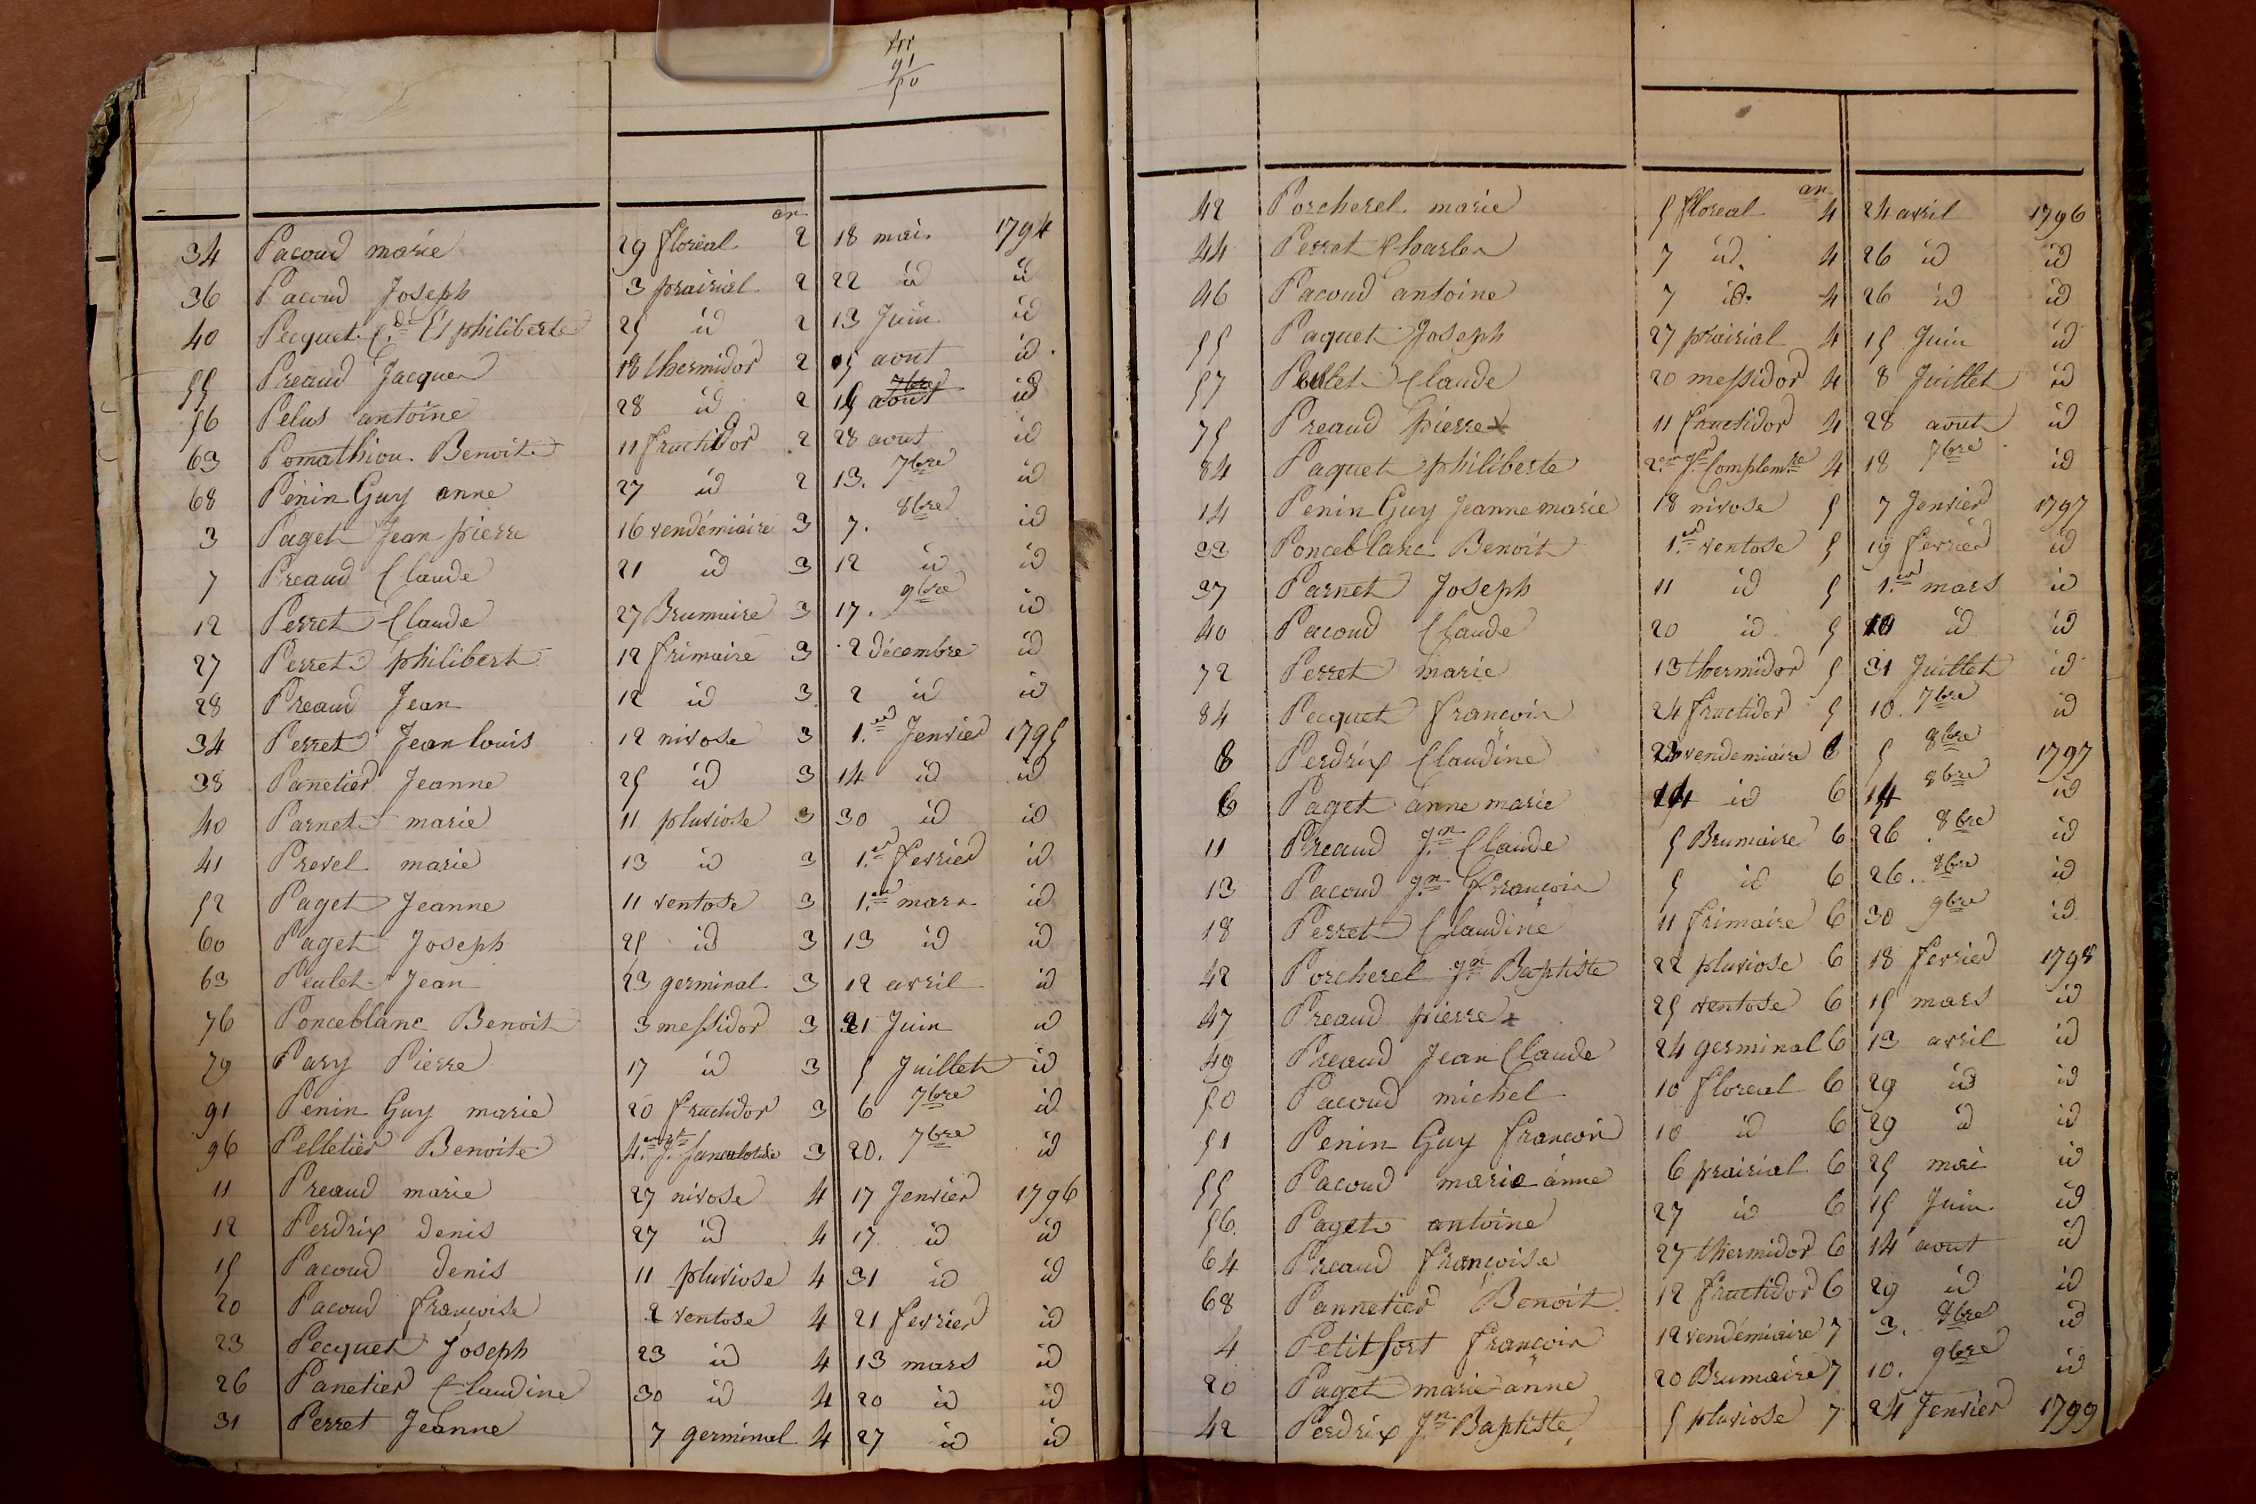 91
50
an
34 Pacoud marie 29 floréal 2 18 mai. 1794
36 Pacoud Joseph 3 prairial 2 22 id id
40 Pecquet C. de Et philiberte 25 id 2 13 Juin id
55 Preaud Jacques 18 thermidor 2 5 aout id
56 Pelus antoine 28 id 2 15 aout id
63 Pomathiou Benoite 11 fructidor 2 28 aout id
68 Penin Guy anne 27 id 2 13. 7bre id
3 Paget Jean pierre 16 vendémiaire 3 7. 8bre id
7 Preaud Claude 21 id 3 12 id id
12 Perret Claude 27 Brumaire 3 17. 9bre id
27 Perret philibert 12 frimaire 3 2 décembre id
28 Preaud Jean 12 id 3 2 id id
34 Perret Jean louis 12 nivose 3 1.er Jenvier 1795
38 Panetier Jeanne 25 id 3 14 id id
40 Parnet marie 11 pluviose 3 30 id id
41 Prevel marie 13 id 3 1.er fevrier id
52 Paget Jeanne 11 ventose 3 1.er mars id
60 Paget Joseph 25 id 3 13 id id
63 Peulet Jean 23 germinal 3 12 avril id
76 Ponceblanc Benoit 3 messidor 3 21 Juin id
79 Pary Pierre 17 id 3 5 Juillet id
91 Penin Guy marie 20 fructidor 3 6 7bre id
96 Pelletier Benoite 4.e 3 20. 7bre id
11 Preaud marie 27 nivose 4 17 Jenvier 1796
12 Perdrix denis 27 id 4 17 id id
15 Pacoud denis 11 pluviose 4 31 id id
20 Pacoud françoise 2 ventose 4 21 fevrier id
23 Pecquet Joseph 23 id 4 13 mars id
26 Panetier Claudine 30 id 4 20 id id
31 Perret Jeanne 7 germinal 4 27 id id
an
42 Porcherel marie 5 floreal 4 24 avril 1796
44 Perret Charles 7 id. 4 26 id id
46 Pacoud antoine 7 id. 4 26 id id
55 Paquet Joseph 27 prairial 4 15 Juin id
57 Peulet Claude 20 messidor 4 8 Juillet id
75 Preaud pierre x 11 fructidor 4 28 aout id
84 Paquet philiberte 2.e Complem.re 4 18 7bre id
14 Penin Guy Jeanne marie 18 nivose 5 7 Jenvier 1797
33 Ponceblanc Benoit 1.er ventose 5 19 fevrier id
37 Parnet Joseph 11 id 5 1.er mars id
40 Pacoud Claude 20 id 5 10 id id
72 Perret marie 13 thermidor 5 31 Juillet id
84 Pecquet françois 24 fructidor 5 10. 7bre id
Perdrix Claudine vendemiaire 6 5 8bre 1797
6 Paget anne marie id 6 14 8bre id
11 Preaud J.n Claude 5 Brumaire 6 26 8bre id
13 Pacoud J.n François 5 id 6 26. 8bre id
18 Perret Claudine 11 frimaire 6 30 9bre id
42 Porcherel J.n Baptiste 22 pluviose 6 18 fevrier 1798
47 Preaud pierre x 25 ventose 6 15 mars id
49 Preaud Jean Claude 24 germinal 6 13 avril id
50 Pacoud michel 10 floreal 6 29 id id
51 Penin Guy françois 10 id 6 29 id id
55 Pacoud marie anne 6 prairial 6 25 mai id
56. Paget antoine 27 id 6 15 Juin. id
64 Preaud françoise 27 thermidor 6 14 aout id
68 Pannetier Benoit 12 fructidor 6 29 id id
4 Petitfort françois 12 vendémiaire 7 3. 8bre id
20 Paget marie anne 20 Brumaire 7 10. 9bre id
42 Perdrix J.n Baptiste 5 pluviose 7 24 Jenvier 1799